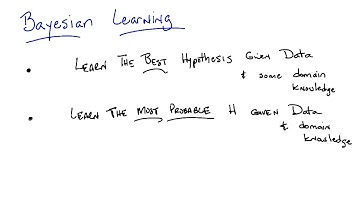 Bayesian Learning
• Learn The Best Hypothesis Given Data
& some domain
knowledge
• Learn The Most Probable H Given Data
& domain
knowledge